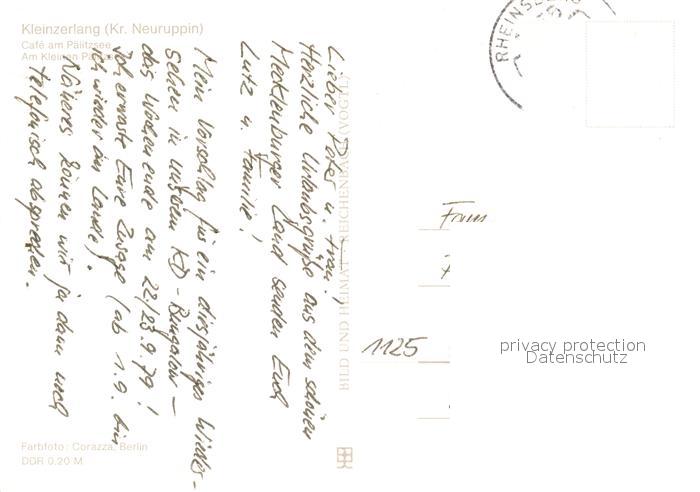 Kleinzerlang (Kr. Neuruppin)
Café am Pälitzsee
Am Kleinen
Lieber Peter u. Frau!
Herzliche Urlaubsgrüße aus dem schönen
Mecklenburger Land senden Euch
Lutz u. Familie!
Mein Vorschlag für ein diesjähriges Wieder-
sehen in unserem KD-Bungalow –
das Wochenende am 22/23.9.79!
Ich erwarte Eure Zusage (ab 1.9. bin
ich wieder im Lande).
Näheres können wir ja dann noch
telefonisch absprechen.
BILD UND HEIMAT REICHENBACH (VOGTL)
Farbfoto: Corazza, Berlin
DDR 0,20 M
RHEINSBERG
1125
privacy protection
Datenschutz